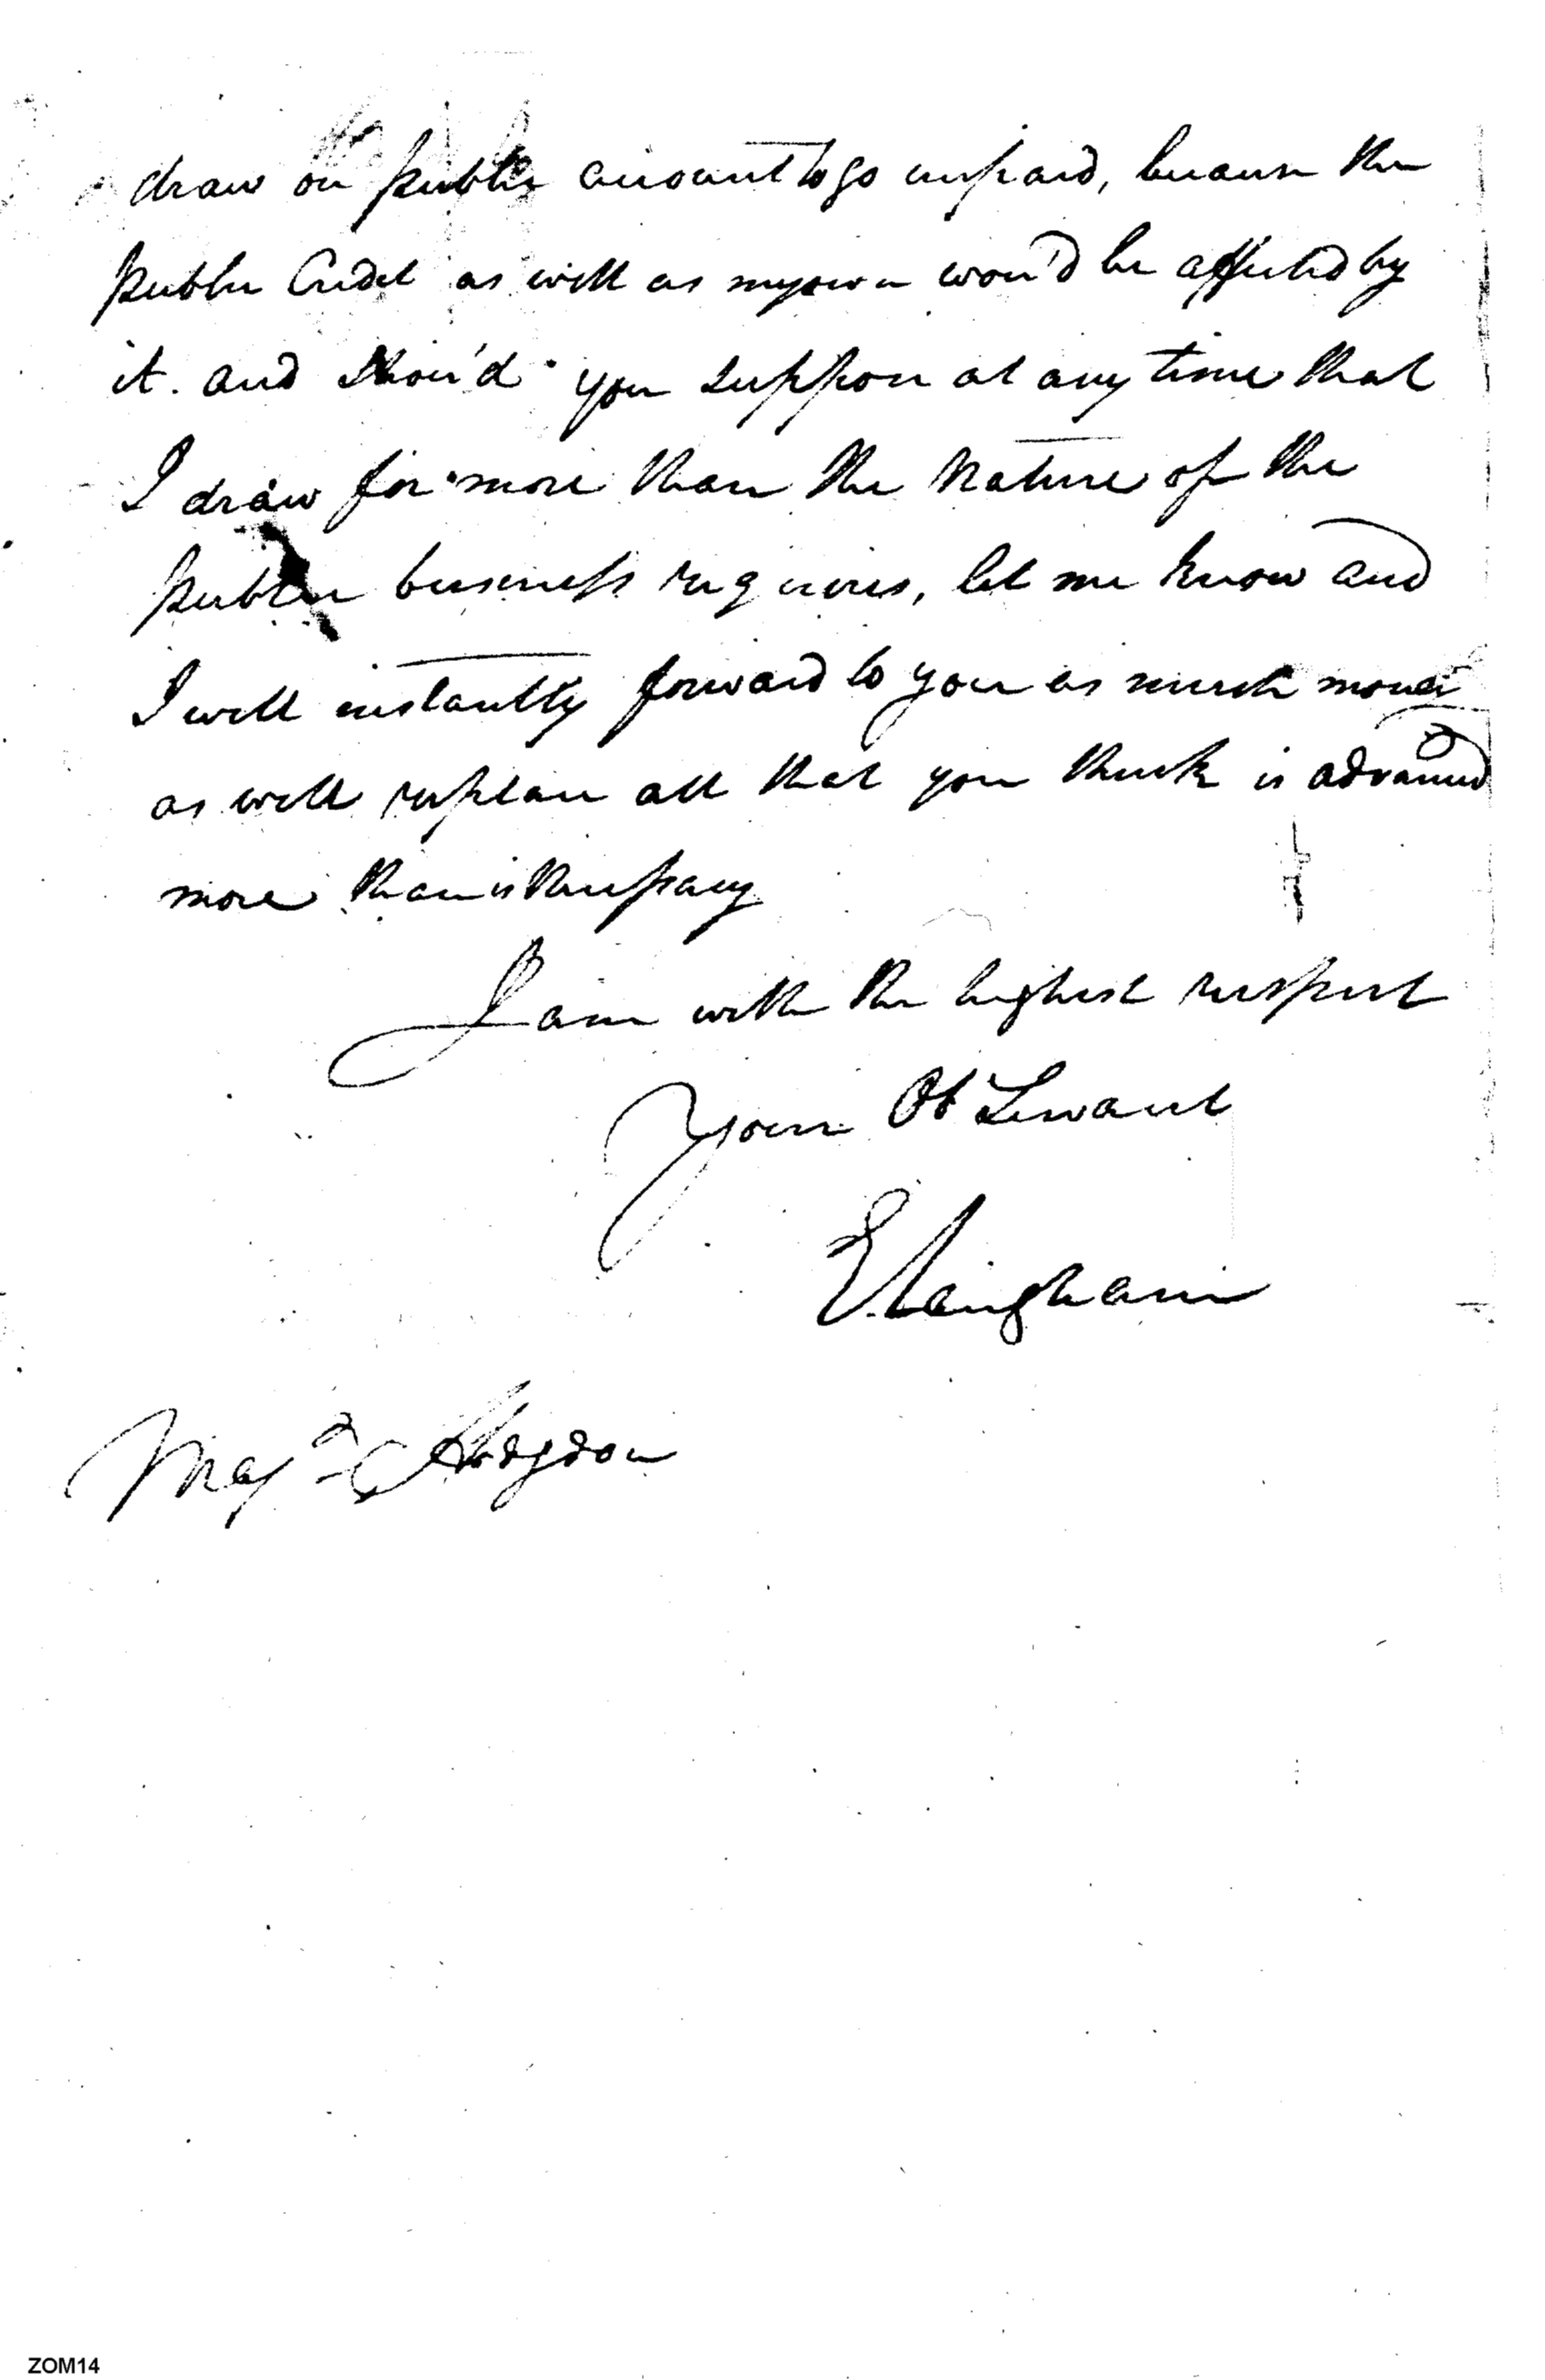 draw on public account to go unpaid, because the
public Credit as well as my own wou'd be affected by
it. and Shou'd you suppose at any time that
I draw for more than the Nature of the
public business requires, let me know and
I will instantly forward to you as much money
as will replace all that you think is advanced
more than is
I am with the highest respect
Your Ob Servant
E Langham
Maj.r S Hodgdon
ZOM14